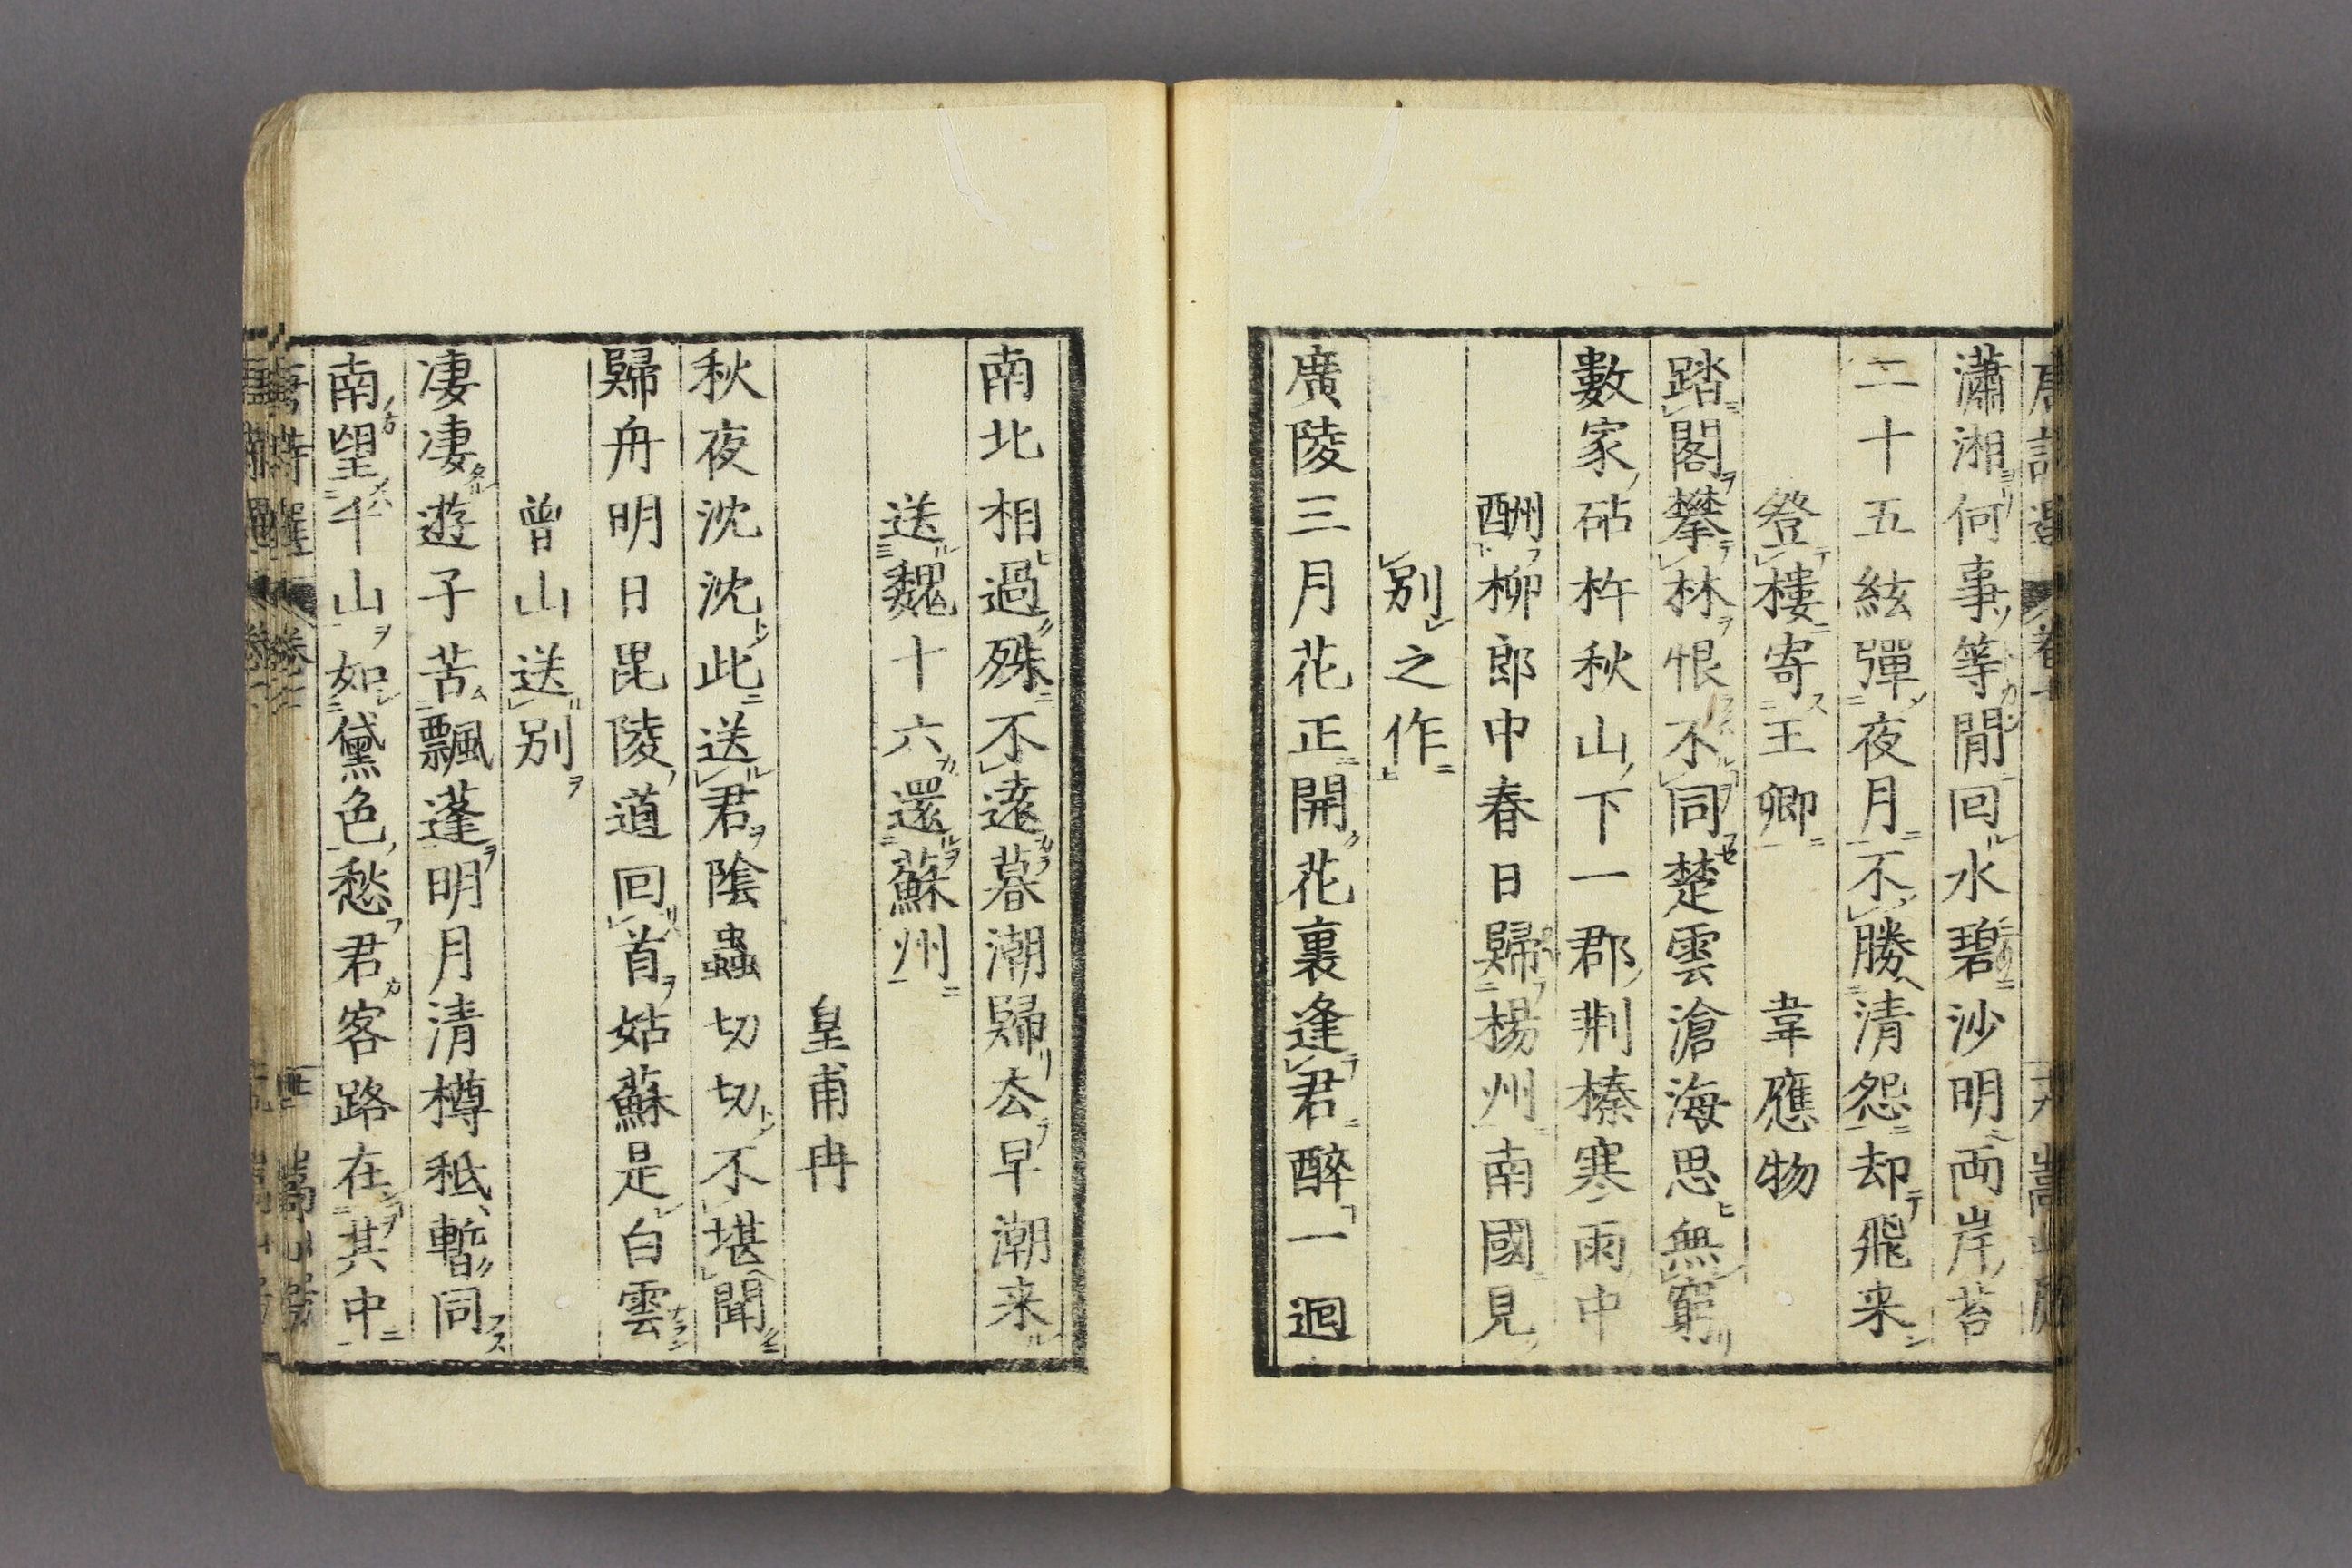 瀟湘何事等閒回水碧沙明両岸苔
二十五絃彈夜月不勝清怨却飛来
登樓寄王卿　韋應物
踏閣攀林恨不同楚雲滄海思無窮
數家砧杵秋山下一郡荆榛寒雨中
酬柳郎中春日歸楊州南國見
別之作
廣陵三月花正開花裏逢君醉一迴
南北相過殊不遠暮潮歸去早潮来
送魏十六還蘇州
皇甫冉
秋夜沈沈此送君陰蟲切切不堪聞
歸舟明日毘陵道回首姑蘇是白雲
曽山送別
凄凄遊子苦飄蓬明月清樽秪暫同
南望千山如黛色愁君客路在其中